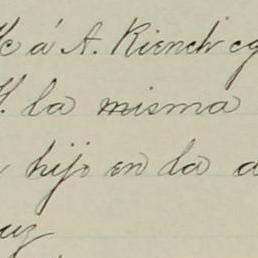 á A. Riench
la misma
hijo en la
uz